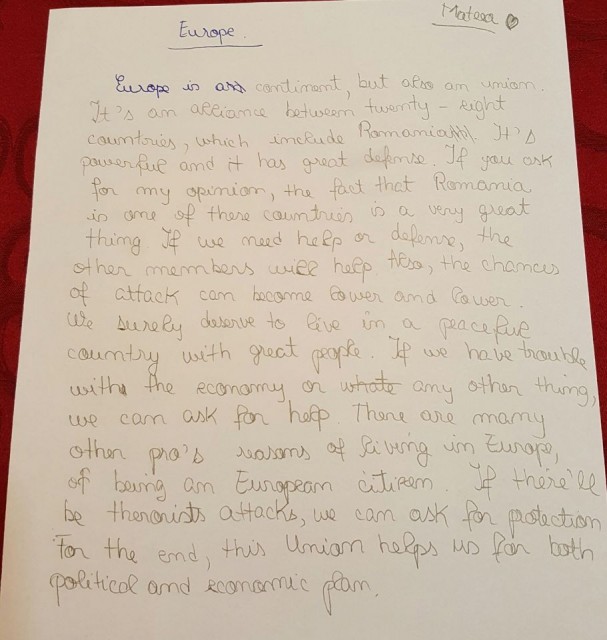 Matea
Europe.
Europe is a continent, but also an union.
It's an alliance between twenty-eight
countries, which include Romania. It's
powerful and it has great defense. If you ask
for my opinion, the fact that Romania
is one of these countries is a very great
thing. If we need help or defense, the
other members will help. Also, the chances
of attack can become lower and lower.
We surely deserve to live in a peaceful
country with great people. If we have trouble
with the economy or whate any other thing,
we can ask for help. There are many
other pro's reasons of living in Europe,
of being an European citizen. If there'll
be therorists attacks, we can ask for protection
For the end, this Union helps us for both
political and economic plan.